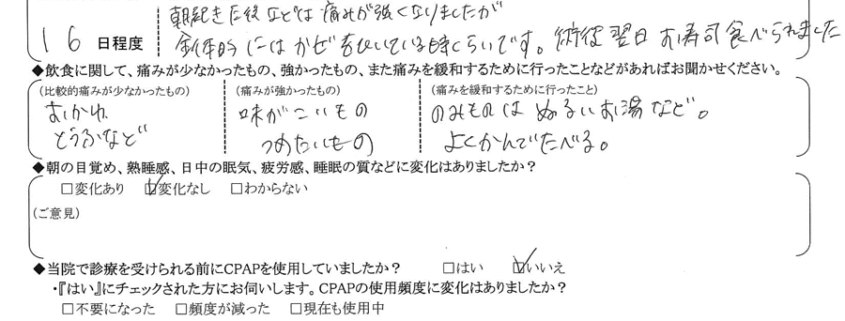 朝起きた後などは痛みが強くなりましたが
16 日程度 全体的にはかぜをひいている時くらいです。術後翌日お寿司食べられました
◆飲食に関して、痛みが少なかったもの、強かったもの、また痛みを緩和するために行ったことなどがあればお聞かせください。
(比較的痛みが少なかったもの) (痛みが強かったもの) (痛みを緩和するために行ったこと)
おかゆ 味がこいもの のみものは ぬるいお湯など。
とうふなど つめたいもの よくかんでたべる。
◆朝の目覚め、熟睡感、日中の眠気、疲労感、睡眠の質などに変化はありましたか？
□変化あり ☑変化なし □わからない
(ご意見)
◆当院で診療を受けられる前にCPAPを使用していましたか？ □はい ☑いいえ
・『はい』にチェックされた方にお伺いします。CPAPの使用頻度に変化はありましたか？
□不要になった □頻度が減った □現在も使用中